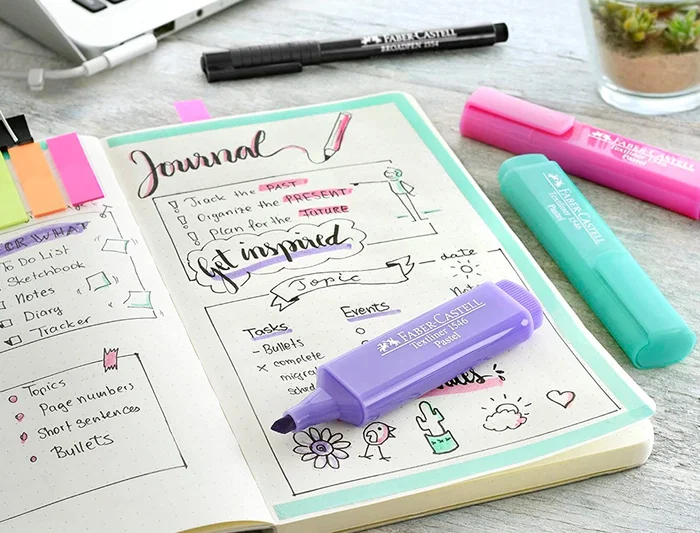 OR WHAT
To Do List
Sketchbook
Notes
Diary
Tracker
Topics
Page numbers
Short sentences
Bullets
Journal
! Track the PAST
! Organize the PRESENT
! Plan for the FUTURE
Get inspired
Topic
date
Tasks
- Bullets
× complete
Events
FABER-CASTELL
BROADPEN 1554
FABER-CASTELL
Textliner 1546
Pastel
FABER-CASTELL
Textliner 1546
Pastel
FABER-CASTELL
Textliner 1546
Pastel